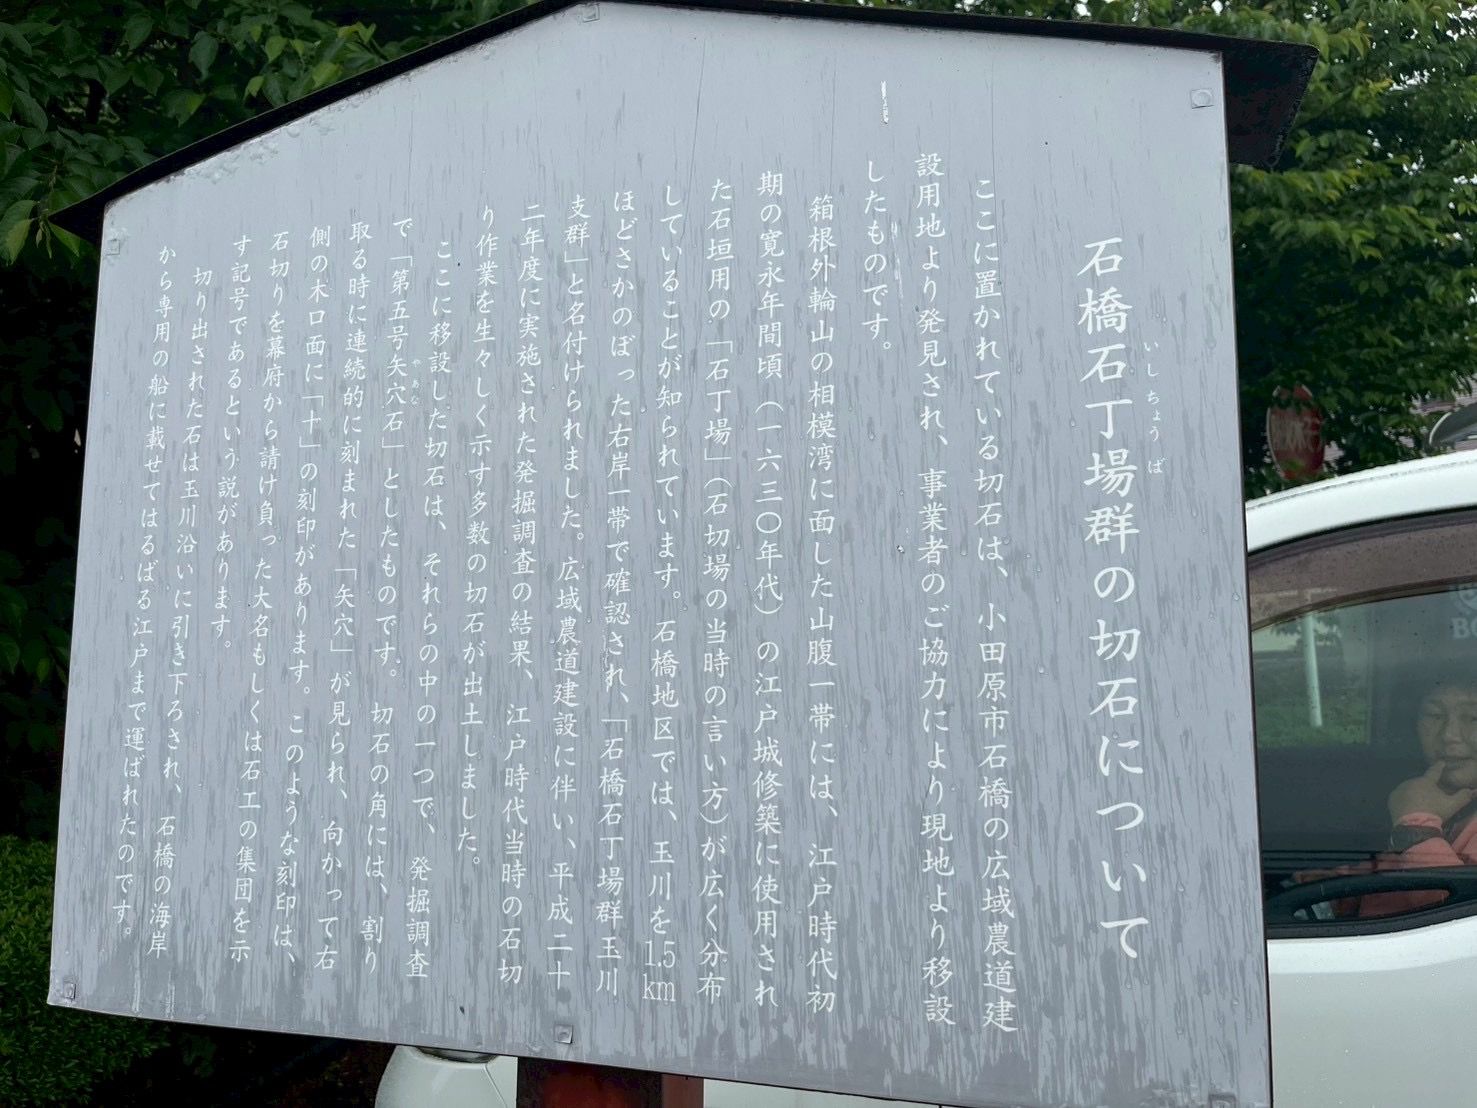 石橋石丁場群の切石について
いしちょうば
ここに置かれている切石は、小田原市石橋の広域農道建
設用地より発見され、事業者のご協力により現地より移設
したものです。
箱根外輪山の相模湾に面した山腹一帯には、江戸時代初
期の寛永年間頃(一六三〇年代)の江戸城修築に使用され
た石垣用の「石丁場」(石切場の当時の言い方)が広く分布
していることが知られています。石橋地区では、玉川を1.5km
ほどさかのぼった右岸一帯で確認され、「石橋石丁場群玉川
支群」と名付けられました。広域農道建設に伴い、平成二十
二年度に実施された発掘調査の結果、江戸時代当時の石切
り作業を生々しく示す多数の切石が出土しました。
ここに移設した切石は、それらの中の一つで、発掘調査
で「第五号矢穴石」としたものです。切石の角には、割り
やあな
取る時に連続的に刻まれた「矢穴」が見られ、向かって右
側の木口面に「十」の刻印があります。このような刻印は、
石切りを幕府から請け負った大名もしくは石工の集団を示
す記号であるという説があります。
切り出された石は玉川沿いに引き下ろされ、石橋の海岸
から専用の船に載せてはるばる江戸まで運ばれたのです。